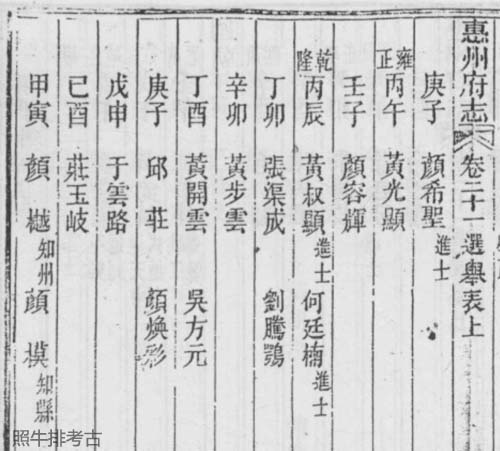 惠州府志 卷二十一 選舉表上
庚子 顏希聖 進士
雍正 丙午 黃光顯
壬子 顏容輝
乾隆 丙辰 黃叔顯 進士 何廷楠 進士
丁卯 張渠成 劉騰鶚
辛卯 黃步雲
丁酉 黃開雲 吳方元
庚子 邱莊 顏煥彩
戊申 于雲路
己酉 莊玉岐
甲寅 顏樾 知州 顏模 知縣
照牛排考古